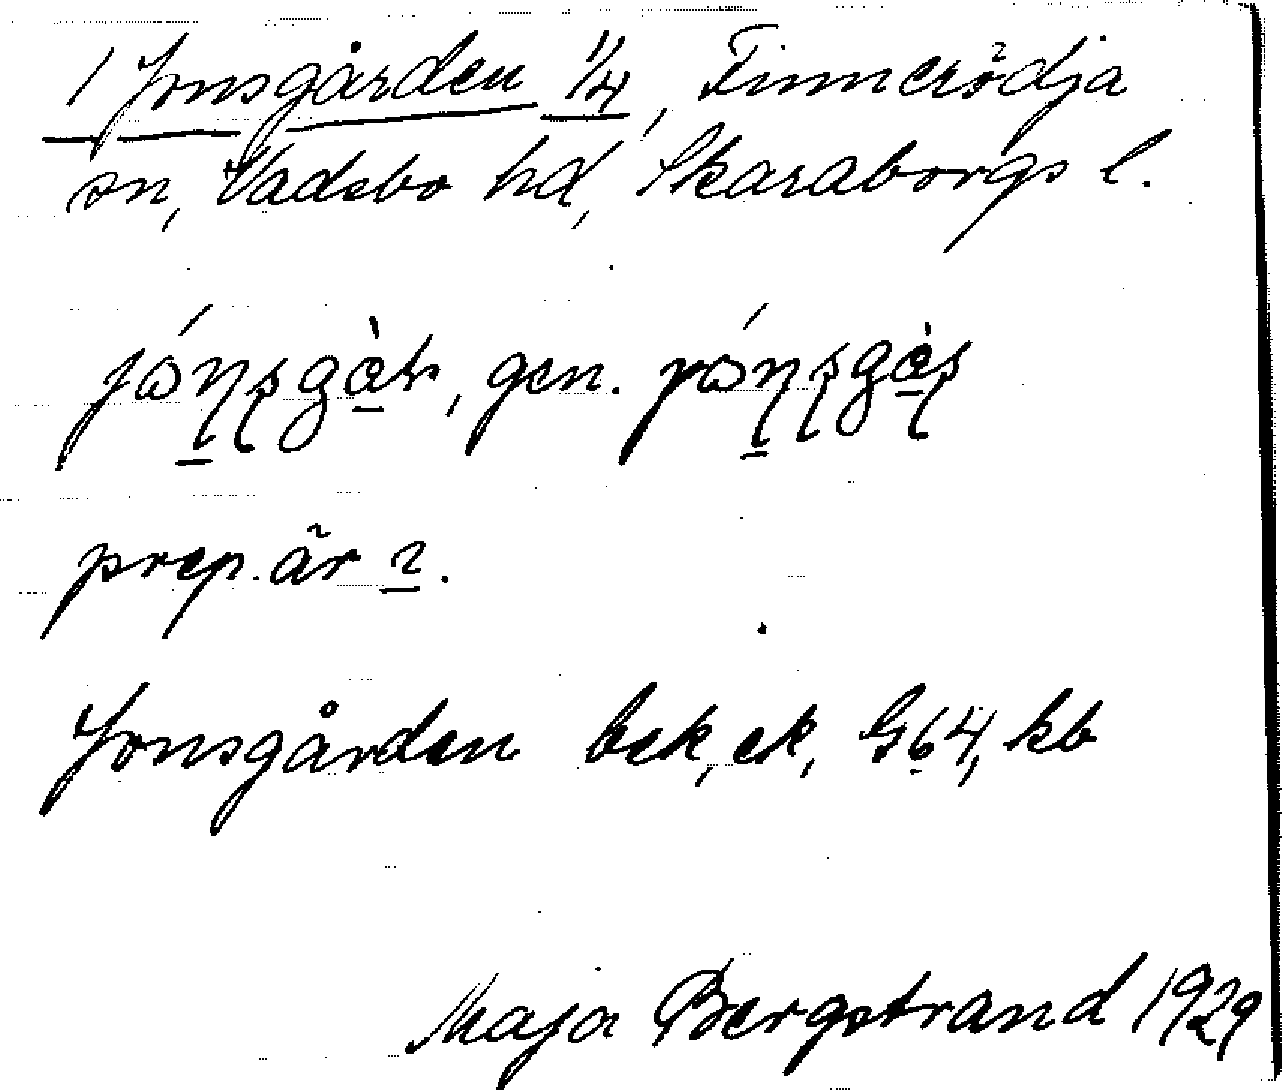 1 Jonsgården 1/4, Finnerödja
sn, Vadsbo hd, Skaraborgs l.
gen.
prep. är 2.
Jonsgården bek, ek, G64, kb
Maja Bergstrand 1929